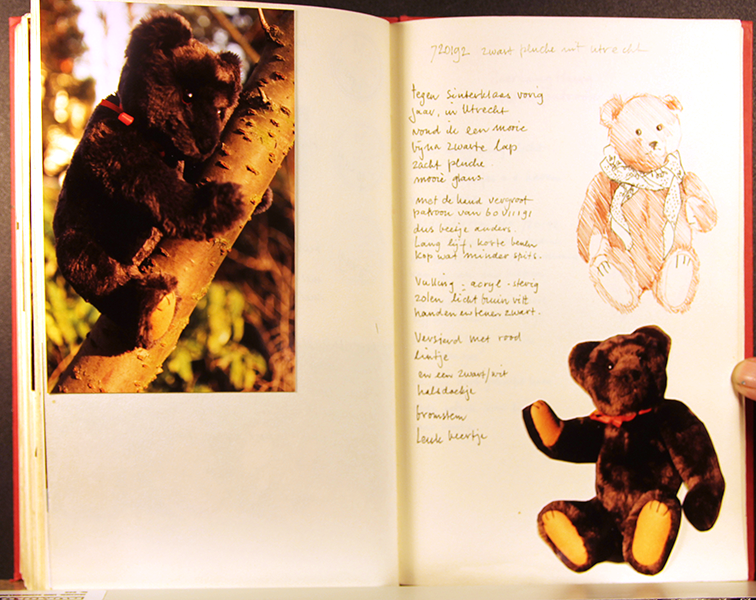 720192 zwart pluche uit Utrecht
tegen Sinterklaas vorig
jaar, in Utrecht
vond ik een mooie
bijna zwarte lap
zacht pluche.
mooie glans
met de hand vergroot
patroon van
dus beetje anders.
Lang lijf, korte benen
kop wat minder spits.
Vulling = acryl - stevig
zolen licht bruin vilt
handen en tenen zwart.
Versierd met rood
lintje
en een zwart/wit
halsdoekje
bromstem
Leuk beertje